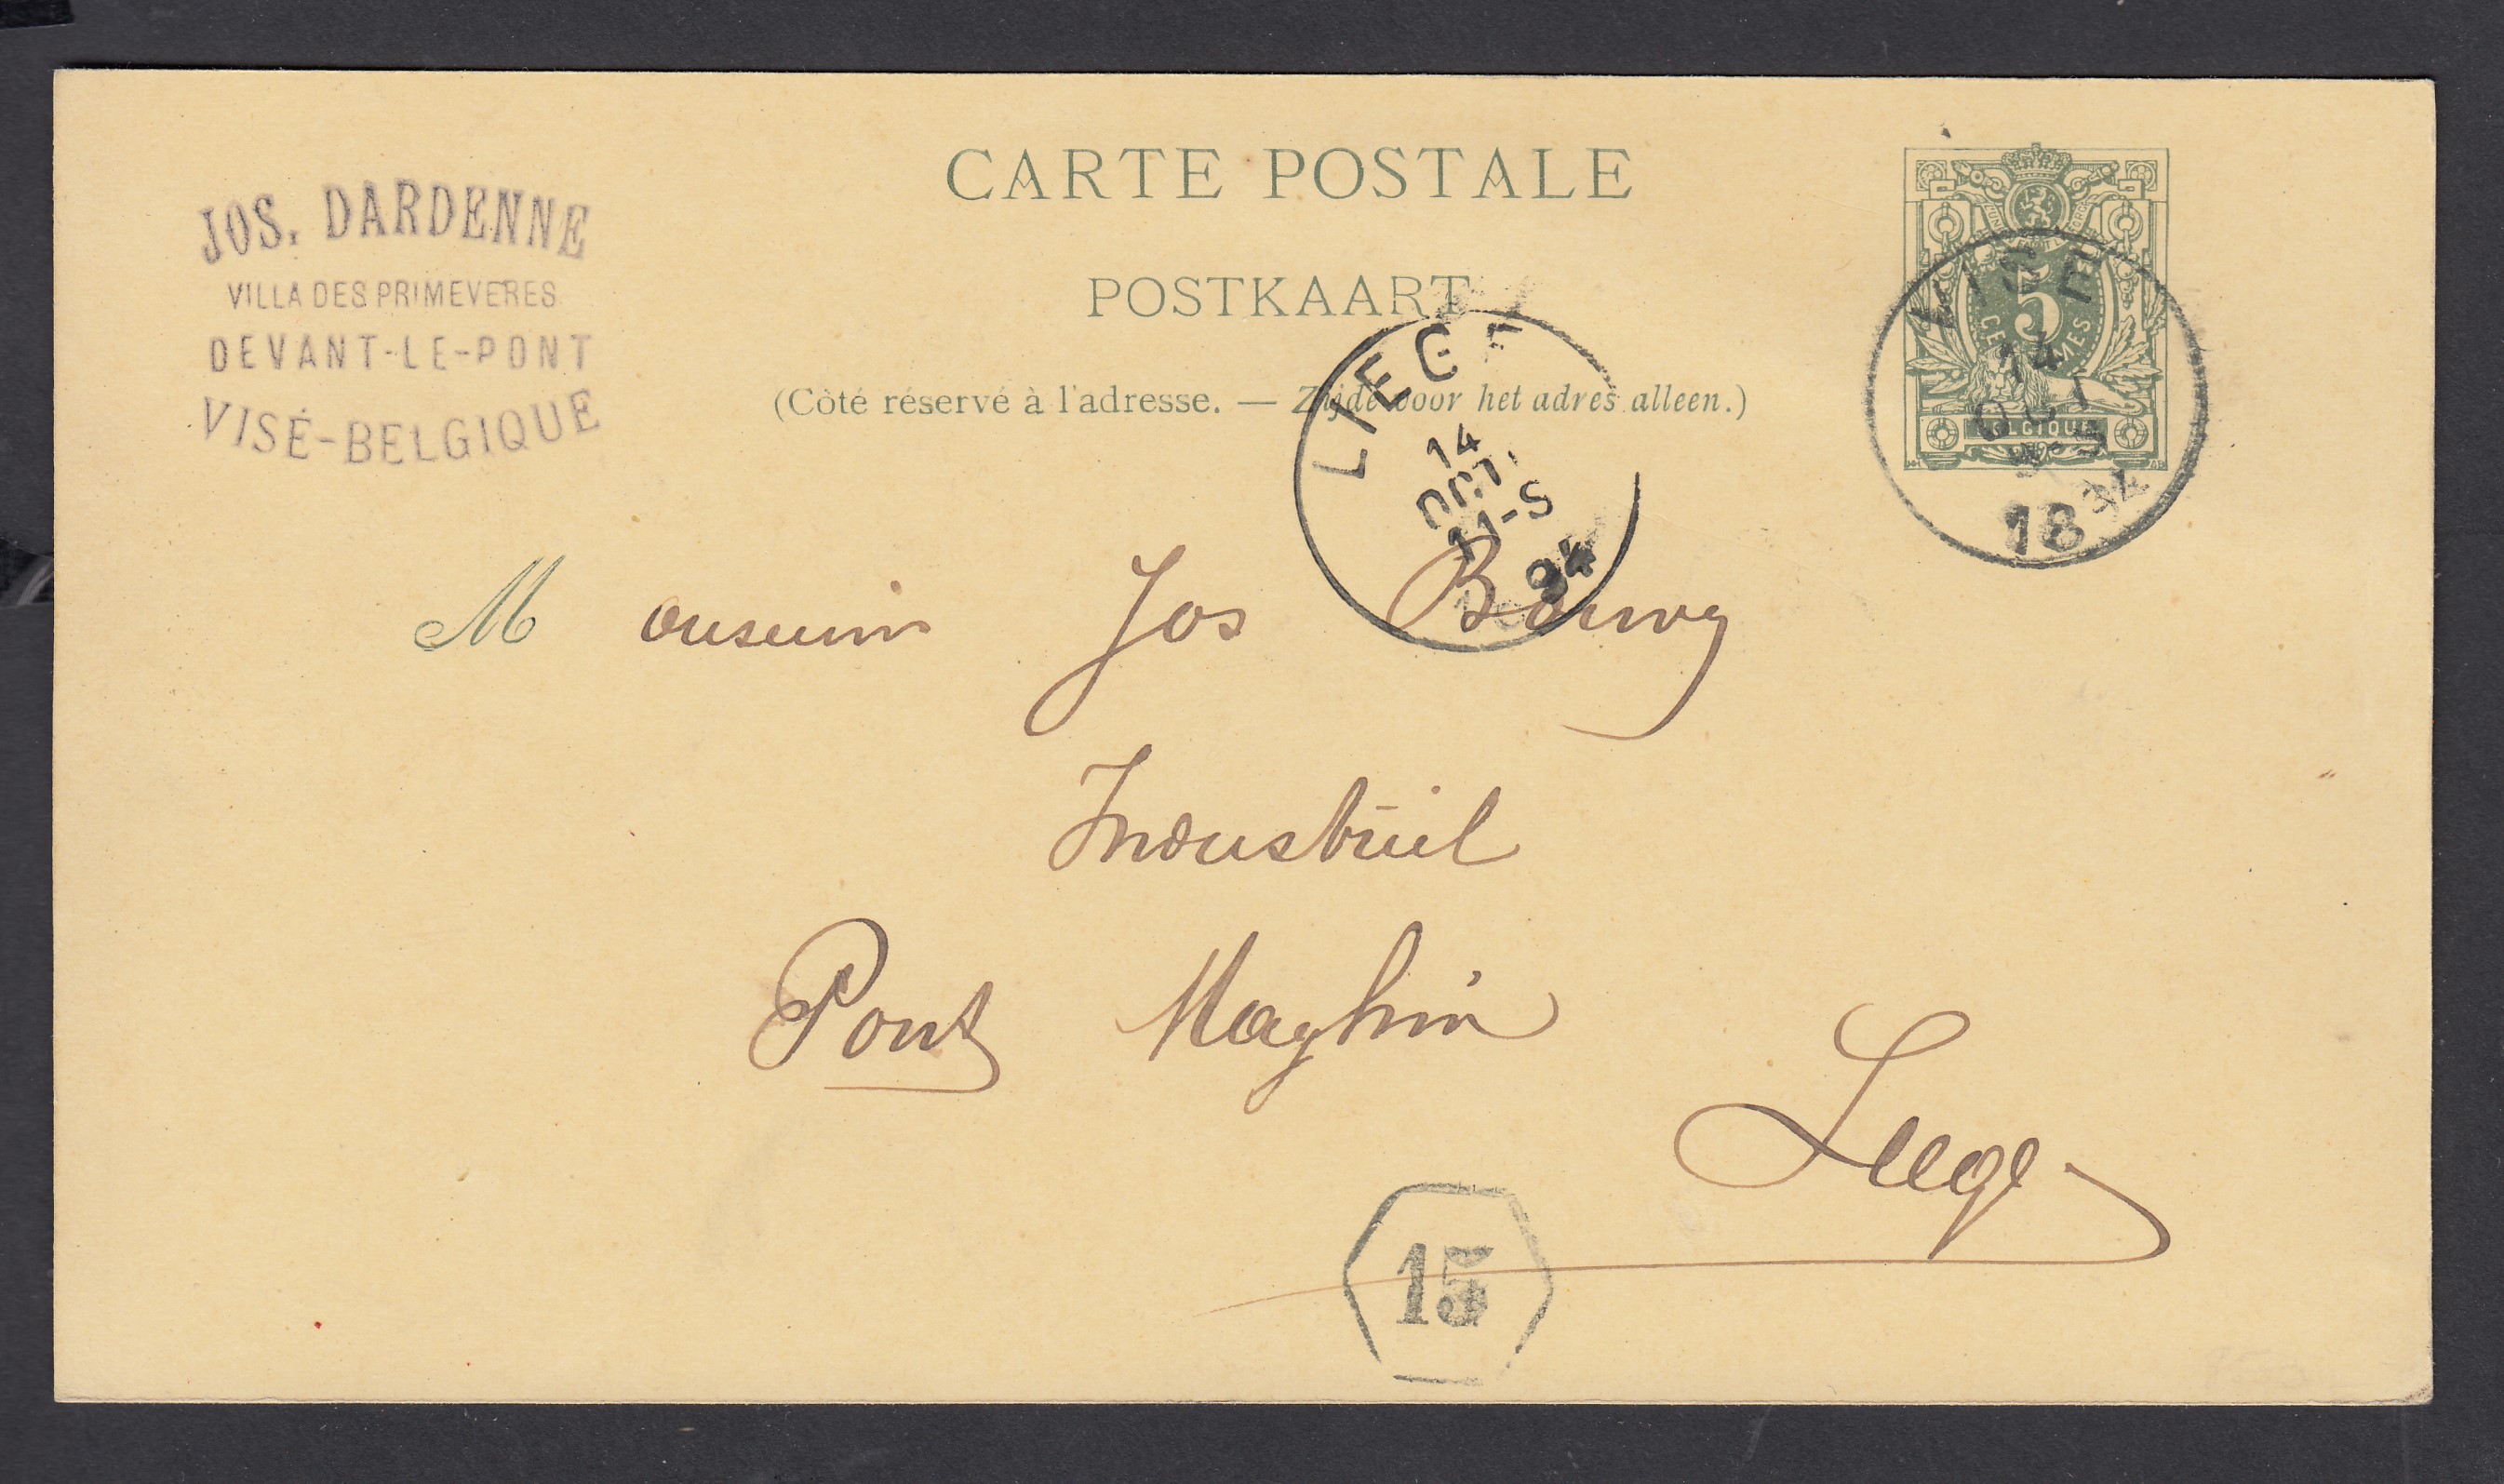 CARTE POSTALE
POSTKAART
(Côté réservé à l'adresse. — Zijde voor het adres alleen.)
JOS. DARDENNE
VILLA DES PRIMEVÈRES
DEVANT-LE-PONT
VISÉ-BELGIQUE
L'UNION FAIT LA FORCE
5
CENTIMES
BELGIQUE
VISE
14
OCT
18 94
LIEGE
14
OCT
11-S
94
Monsieur Jos
Industriel
Pont Maghin
Liege
15